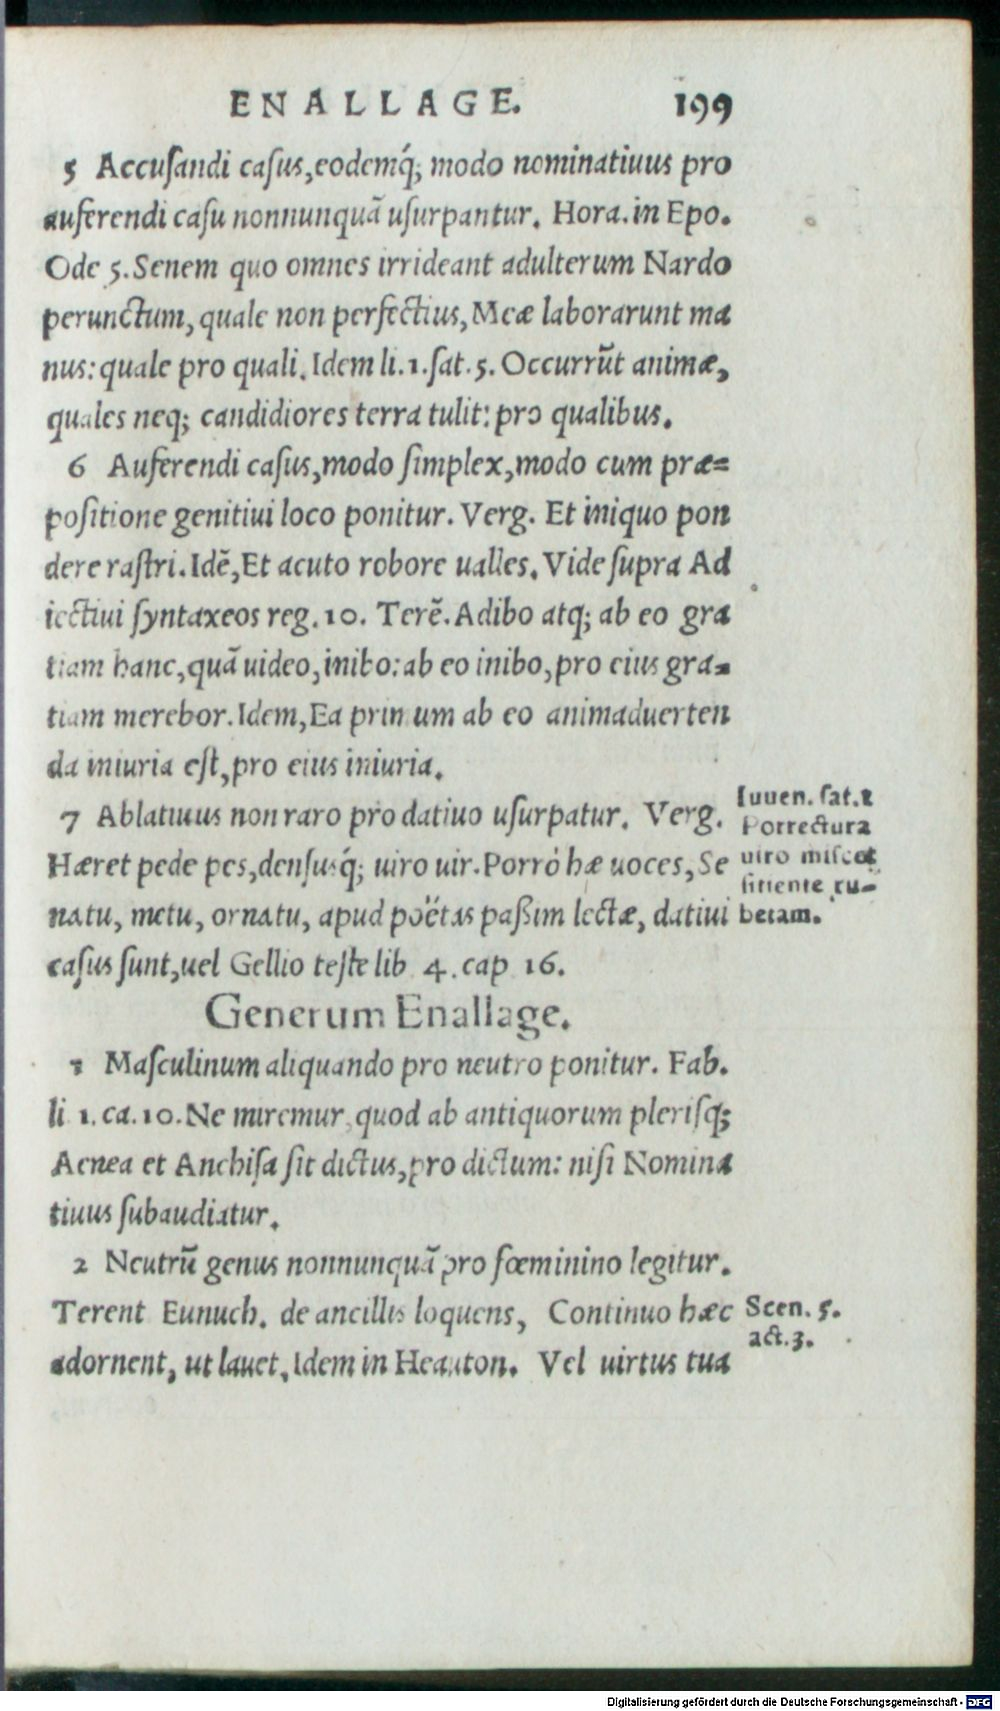 ENALLAGE. 199
5 Accusandi casus, eodemq́; modo nominatiuus pro
auferendi casu nonnunquā usurpantur. Hora. in Epo.
Ode 5. Senem quo omnes irrideant adulterum Nardo
perunctum, quale non perfectius, Meæ laborarunt ma
nus: quale pro quali. Idem li. 1. sat. 5. Occurrūt animæ,
quales neq; candidiores terra tulit: pro qualibus.
6 Auferendi casus, modo simplex, modo cum præ=
positione genitiui loco ponitur. Verg. Et iniquo pon
dere rastri. Idē, Et acuto robore ualles. Vide supra Ad
iectiui syntaxeos reg. 10. Terē. Adibo atq; ab eo gra
tiam hanc, quā uideo, inibo: ab eo inibo, pro eius gra=
tiam merebor. Idem, Ea primum ab eo animaduerten
da iniuria est, pro eius iniuria.
7 Ablatiuus non raro pro datiuo usurpatur. Verg.
Hæret pede pes, densusq́; uiro uir. Porrò hæ uoces, Se
natu, metu, ornatu, apud poëtas paßim lectæ, datiui
casus sunt, uel Gellio teste lib 4. cap 16.
Iuuen. sat. 1
Porrectura
uiro miscet
sitiente ru=
betam.
Generum Enallage.
1 Masculinum aliquando pro neutro ponitur. Fab.
li 1. ca. 10. Ne miremur, quod ab antiquorum plerisq;
Aenea et Anchisa sit dictus, pro dictum: nisi Nomina
tiuus subaudiatur.
2 Neutrū genus nonnunquā pro fœminino legitur.
Terent Eunuch. de ancillis loquens, Continuo hæc
adornent, ut lauet. Idem in Heauton. Vel uirtus tua
Scen. 5.
act. 3.
Digitalisierung gefördert durch die Deutsche Forschungsgemeinschaft - DFG